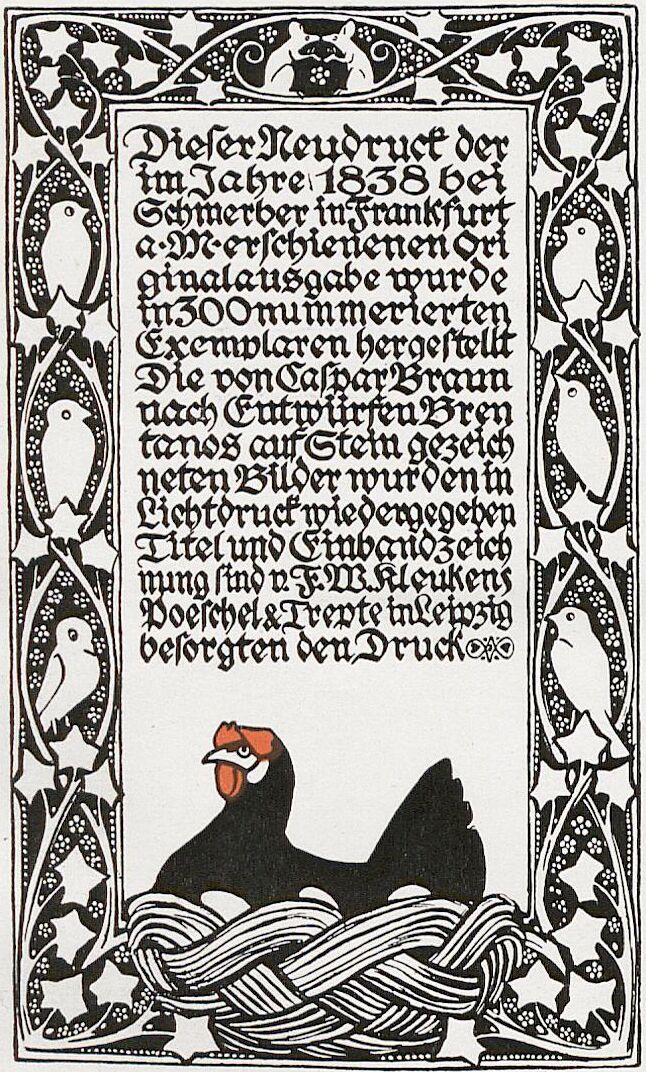 Dieser Neudruck der
im Jahre 1838 bei
Schmerber in Frankfurt
a·M·erschienenen Ori
ginalausgabe wurde
in 300 nummerierten
Exemplaren hergestellt
Die von Caspar Braun
nach Entwürfen Bren
tanos auf Stein gezeich
neten Bilder wurden in
Lichtdruck wiedergegeben
Titel und Einbandzeich
nung sind v. F. W. Kleukens
Poeschel & Trepte in Leipzig
besorgten den Druck